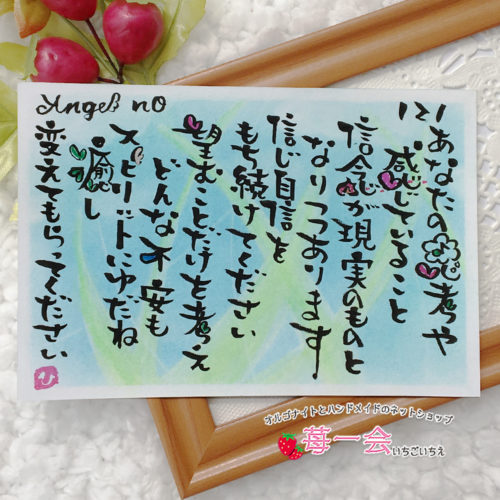 Angel no
121
あなたの思考や
感じていること
信念が現実のものと
なりつつあります
信じ自信を
もち続けてください
望むことだけを考え
どんな不安も
スピリットにゆだね
癒し
変えてもらってください
ひ
オルゴナイトとハンドメイドのネットショップ
苺一会 いちごいちえ